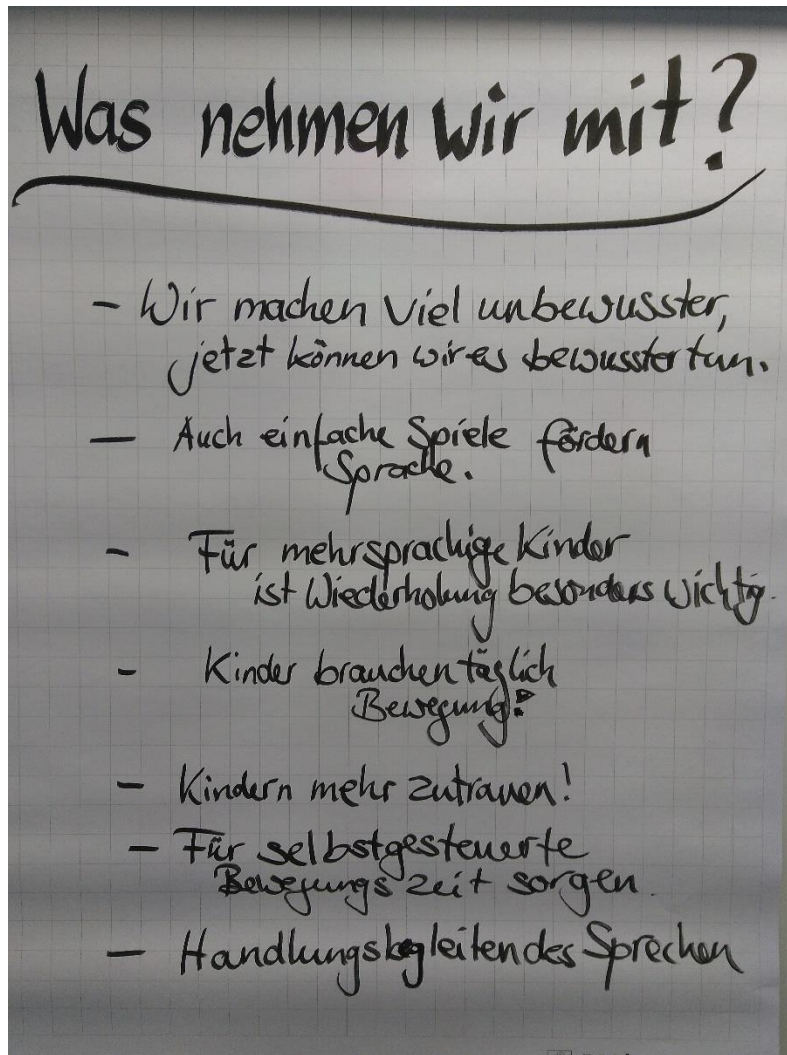 Was nehmen wir mit?
- Wir machen viel unbewusster,
jetzt können wir es bewusster tun.
- Auch einfache Spiele fördern
Sprache.
- Für mehrsprachige Kinder
ist Wiederholung besonders wichtig.
- Kinder brauchen täglich
Bewegung!
- Kindern mehr zutrauen!
- Für selbstgesteuerte
Bewegungszeit sorgen.
- Handlungsbegleitendes Sprechen